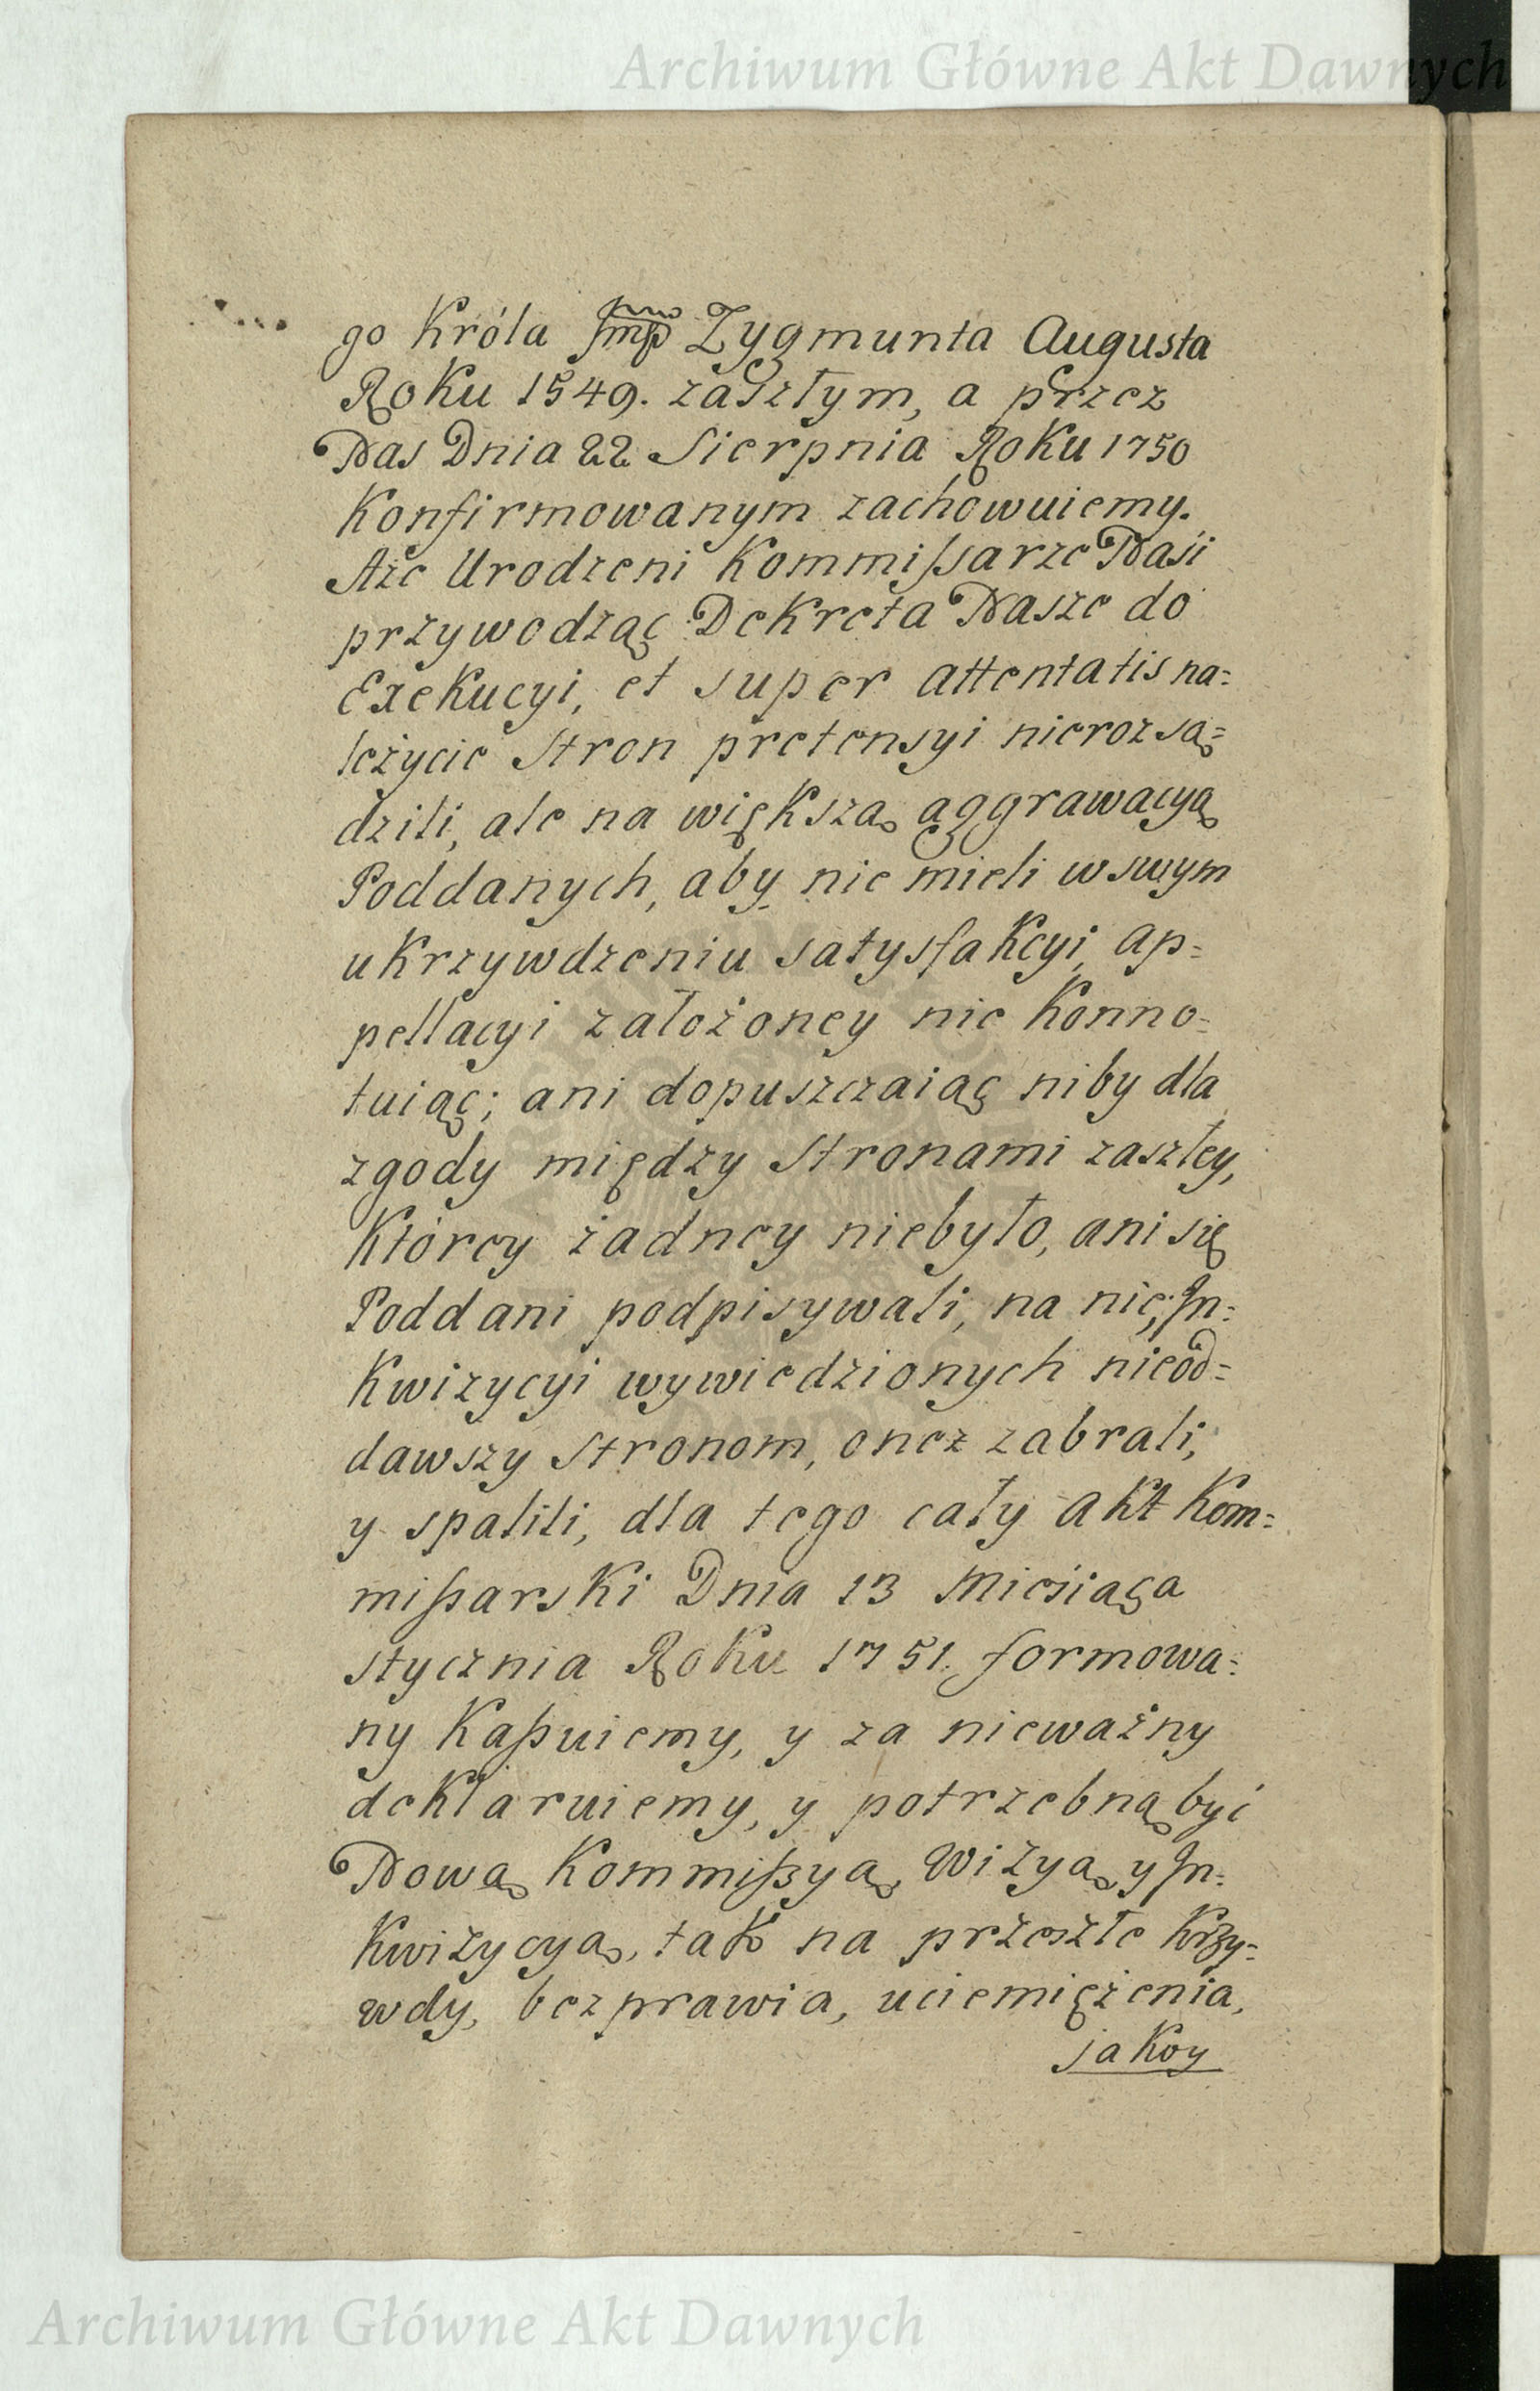 Archiwum Główne Akt Dawnych
go Króla Jmp Zygmunta Augusta
Roku 1549. zaszłym, a przez
Nas Dnia 22 Sierpnia Roku 1750
Konfirmowanym zachowuiemy.
Aże Urodzeni Kommißarze Nasi
przywodząc Dekreta Nasze do
Exekucyi, et super attentatis na=
leżycie Stron pretensyi nierozsą=
dzili, ale na większą aggrawacyą
Poddanych, aby nie mieli w swym
ukrzywdzeniu satysfakcyi, ap=
pellacyi założoney nie konno=
tuiąc; ani dopuszczaiąc niby dla
zgody między Stronami zaszłey,
Którey żadney niebyło, ani się
Poddani podpisywali, na nię; Jn=
kwizycyi wywiedzionych nieod=
dawszy Stronom, onez zabrali,
y spalili, dla tego cały Akt Kom=
mißarski Dnia 13 Miesiąca
stycznia Roku 1751. formowa=
ny Kaßuiemy, y za nieważny
deklaruiemy, y potrzebną być
Nową Kommißyą, Wizyą, y Jn=
kwizycyą, tak na przeszłe Krzy=
wdy, bezprawia, uciemiężenia,
jako y
Archiwum Główne Akt Dawnych